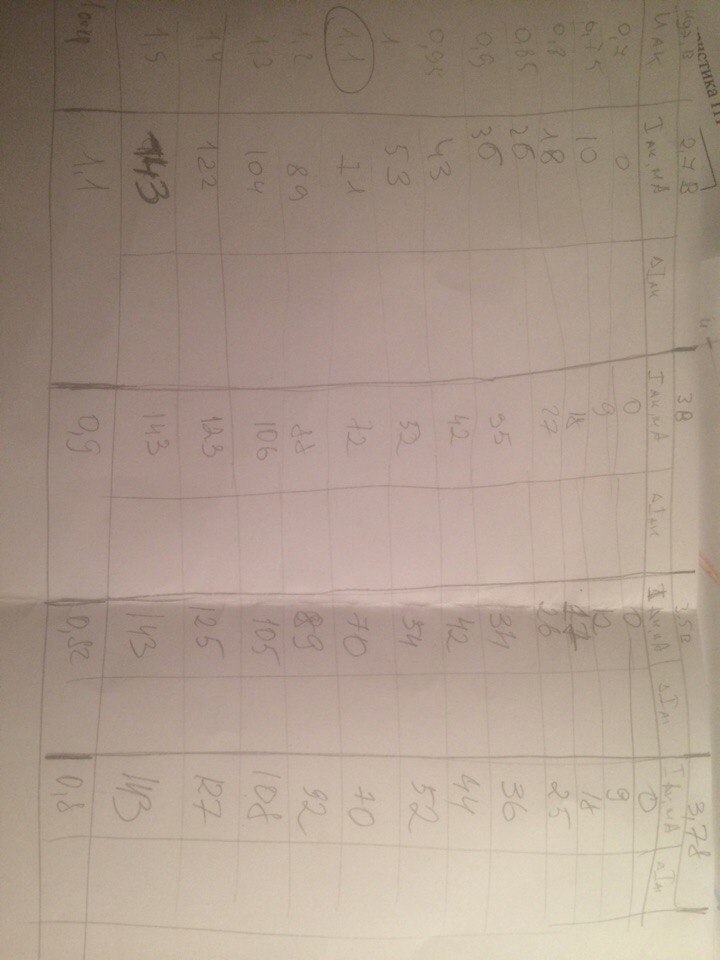 истика
2,7 В 3 В 3,5 В 3,7 В
Uак Iак, мА ΔIак Iак, мА ΔIак Iак, мА ΔIак Iак, мА ΔIак
0,7 0 0 0 0
0,75 10 9 12 9
0,8 18 18 17 18
0,85 26 27 26 25
0,9 36 35 34 36
0,95 43 42 42 44
1 53 52 54 52
1,1 71 72 70 70
1,2 89 88 89 92
1,3 104 106 105 108
1,4 122 123 125 127
1,5 143 143 143 143
1,1 0,9 0,82 0,8